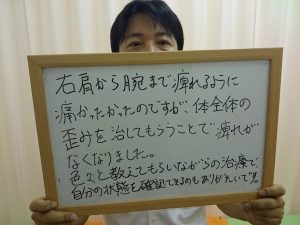 右肩から腕まで痺れるように
痛かったかったのですが、体全体の
歪みを治してもらうことで痺れが
なくなりました。
色々と教えてもらいながらの治療で、
自分の状態を確認できるのもありがたいです。